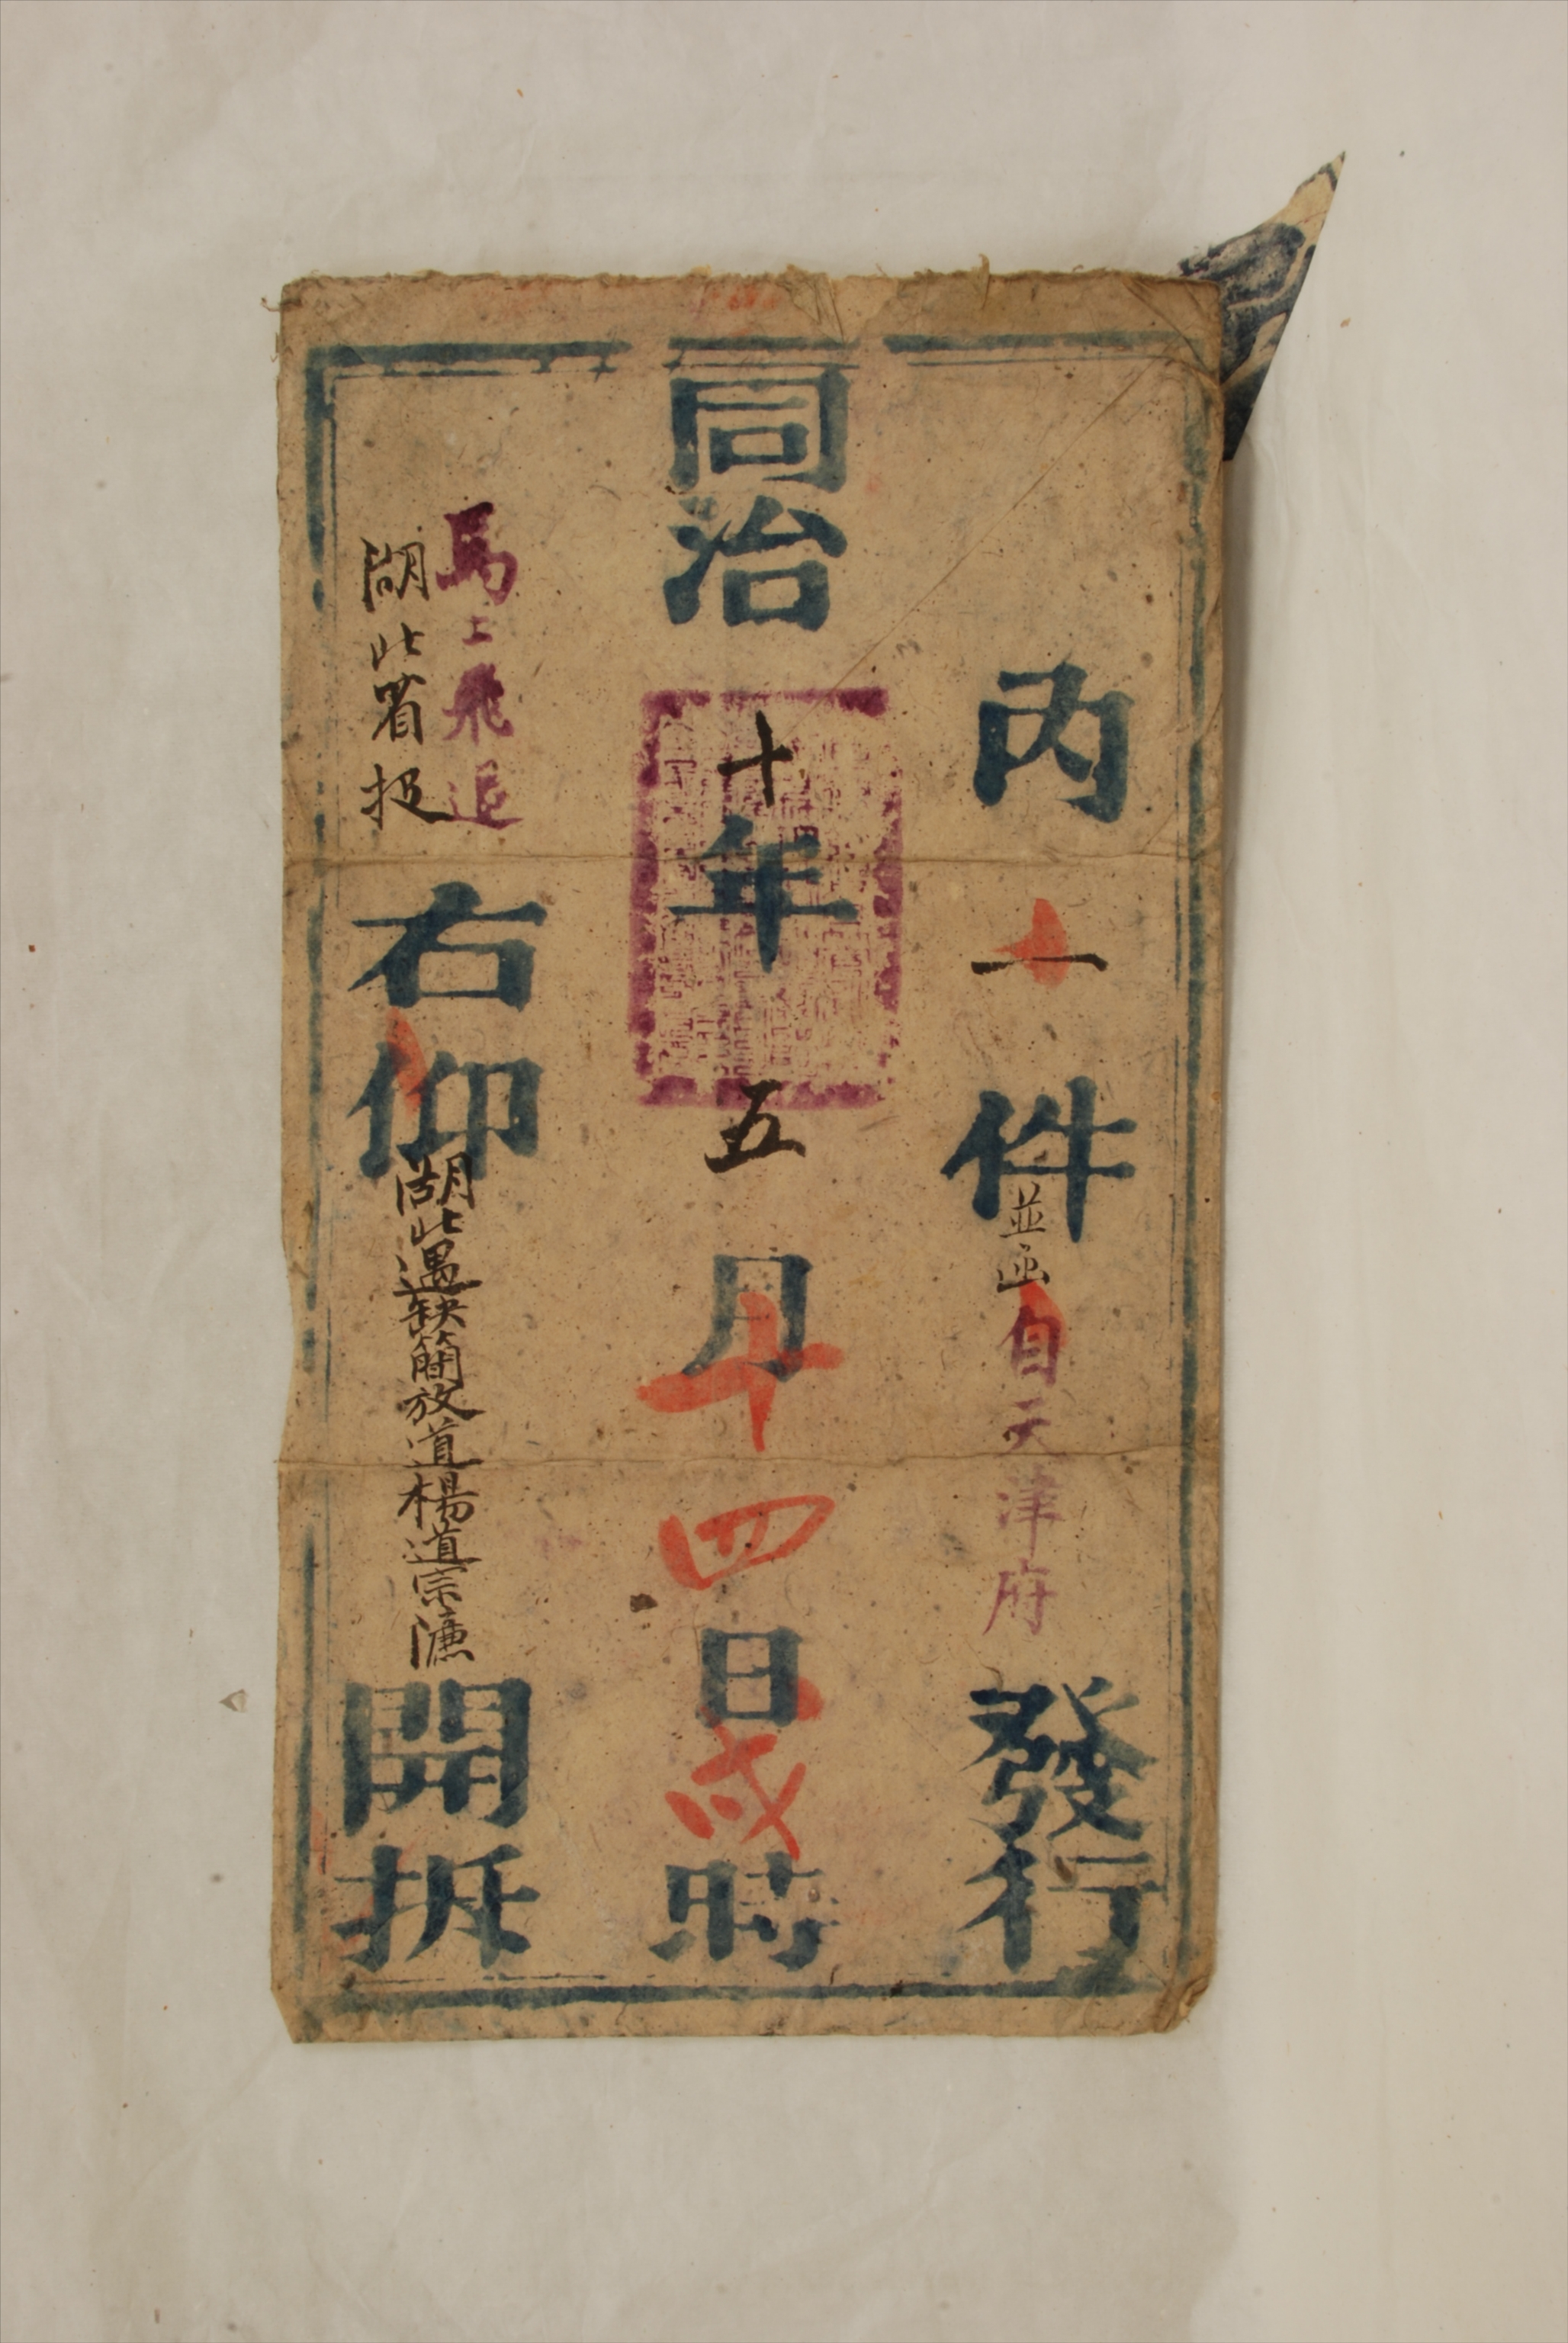 内一件並函自天津府發行
同治十年五月十四日戌時
馬上飛遞
湖北省投
右仰湖北遇缺簡放道楊道宗濂開拆